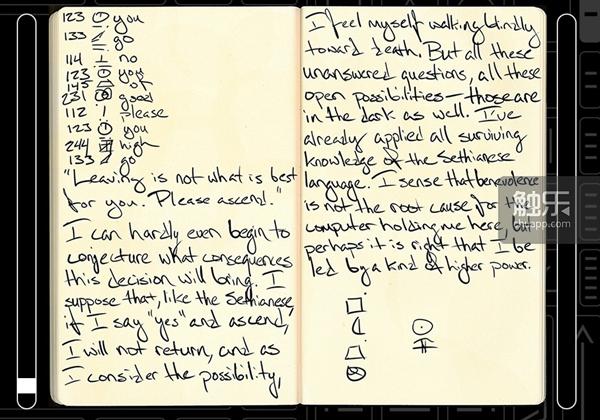 123 you
133 go
114 no
123 you
145 of
231 good
112 please
123 you
244 high
133 go
"Leaving is not what is best
for you. Please ascend."
I can hardly even begin to
conjecture what consequences
this decision will bring. I
suppose that, like the Sethianese,
if I say "yes" and ascend,
I will not return, and as
I consider the possibility,
I feel myself walking blindly
toward death. But all these
unanswered questions, all these
open possibilities—those are
in the dark as well. I've
already applied all surviving
knowledge of the Sethianese
language. I sense that benevolence
is not the root cause for the
computer holding me here, but
perhaps it is right that I be
led by a kind of higher power.
触乐
chuapp.com